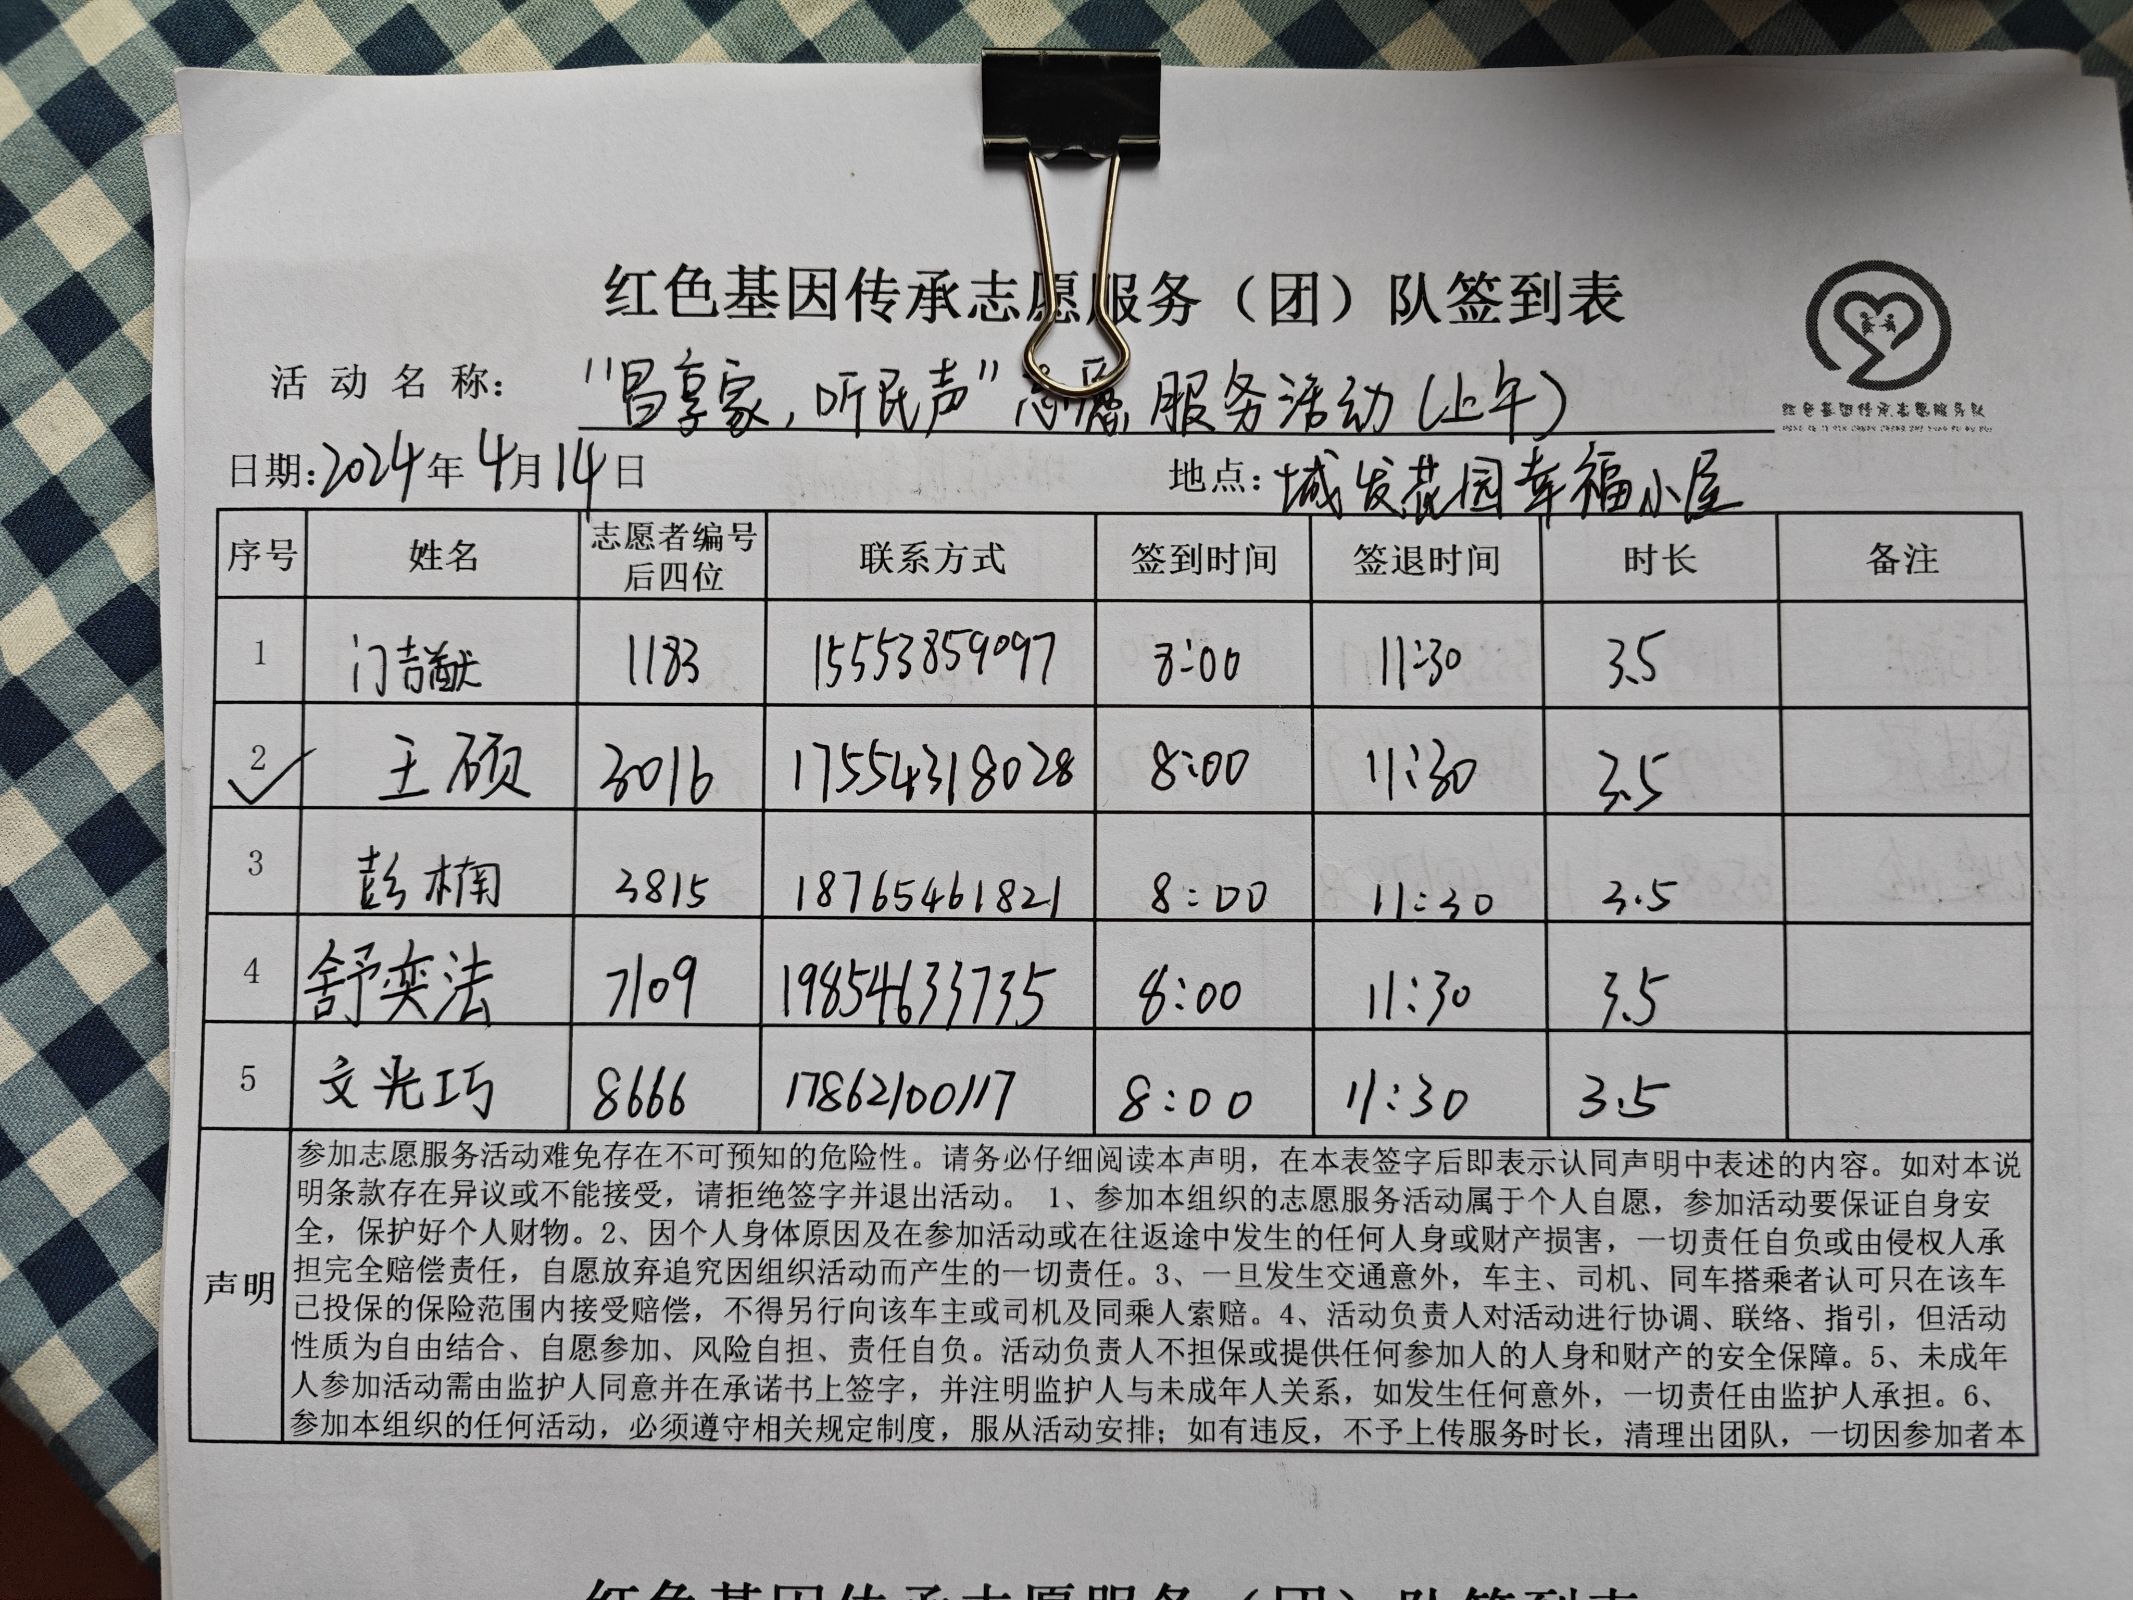 红色基因传承志愿服务（团）队签到表
活动名称：“昌享家，听民声”志愿服务活动（上午）
日期：2024年4月14日 地点：城发花园幸福小屋
序号 姓名 志愿者编号后四位 联系方式 签到时间 签退时间 时长 备注
1 门喆猷 1183 15553859097 8:00 11:30 3.5
2 王硕 3016 17554318028 8:00 11:30 3.5
3 彭楠 3815 18765461821 8:00 11:30 3.5
4 舒奕法 7109 19854633735 8:00 11:30 3.5
5 文光巧 8666 17862100117 8:00 11:30 3.5
声明
参加志愿服务活动难免存在不可预知的危险性。请务必仔细阅读本声明，在本表签字后即表示认同声明中表述的内容。如对本说
明条款存在异议或不能接受，请拒绝签字并退出活动。 1、参加本组织的志愿服务活动属于个人自愿，参加活动要保证自身安
全，保护好个人财物。2、因个人身体原因及在参加活动或在往返途中发生的任何人身或财产损害，一切责任自负或由侵权人承
担完全赔偿责任，自愿放弃追究因组织活动而产生的一切责任。3、一旦发生交通意外，车主、司机、同车搭乘者认可只在该车
已投保的保险范围内接受赔偿，不得另行向该车主或司机及同乘人索赔。4、活动负责人对活动进行协调、联络、指引，但活动
性质为自由结合、自愿参加、风险自担、责任自负。活动负责人不担保或提供任何参加人的人身和财产的安全保障。5、未成年
人参加活动需由监护人同意并在承诺书上签字，并注明监护人与未成年人关系，如发生任何意外，一切责任由监护人承担。6、
参加本组织的任何活动，必须遵守相关规定制度，服从活动安排；如有违反，不予上传服务时长，清理出团队，一切因参加者本
红色基因传承志愿服务（团）队签到表